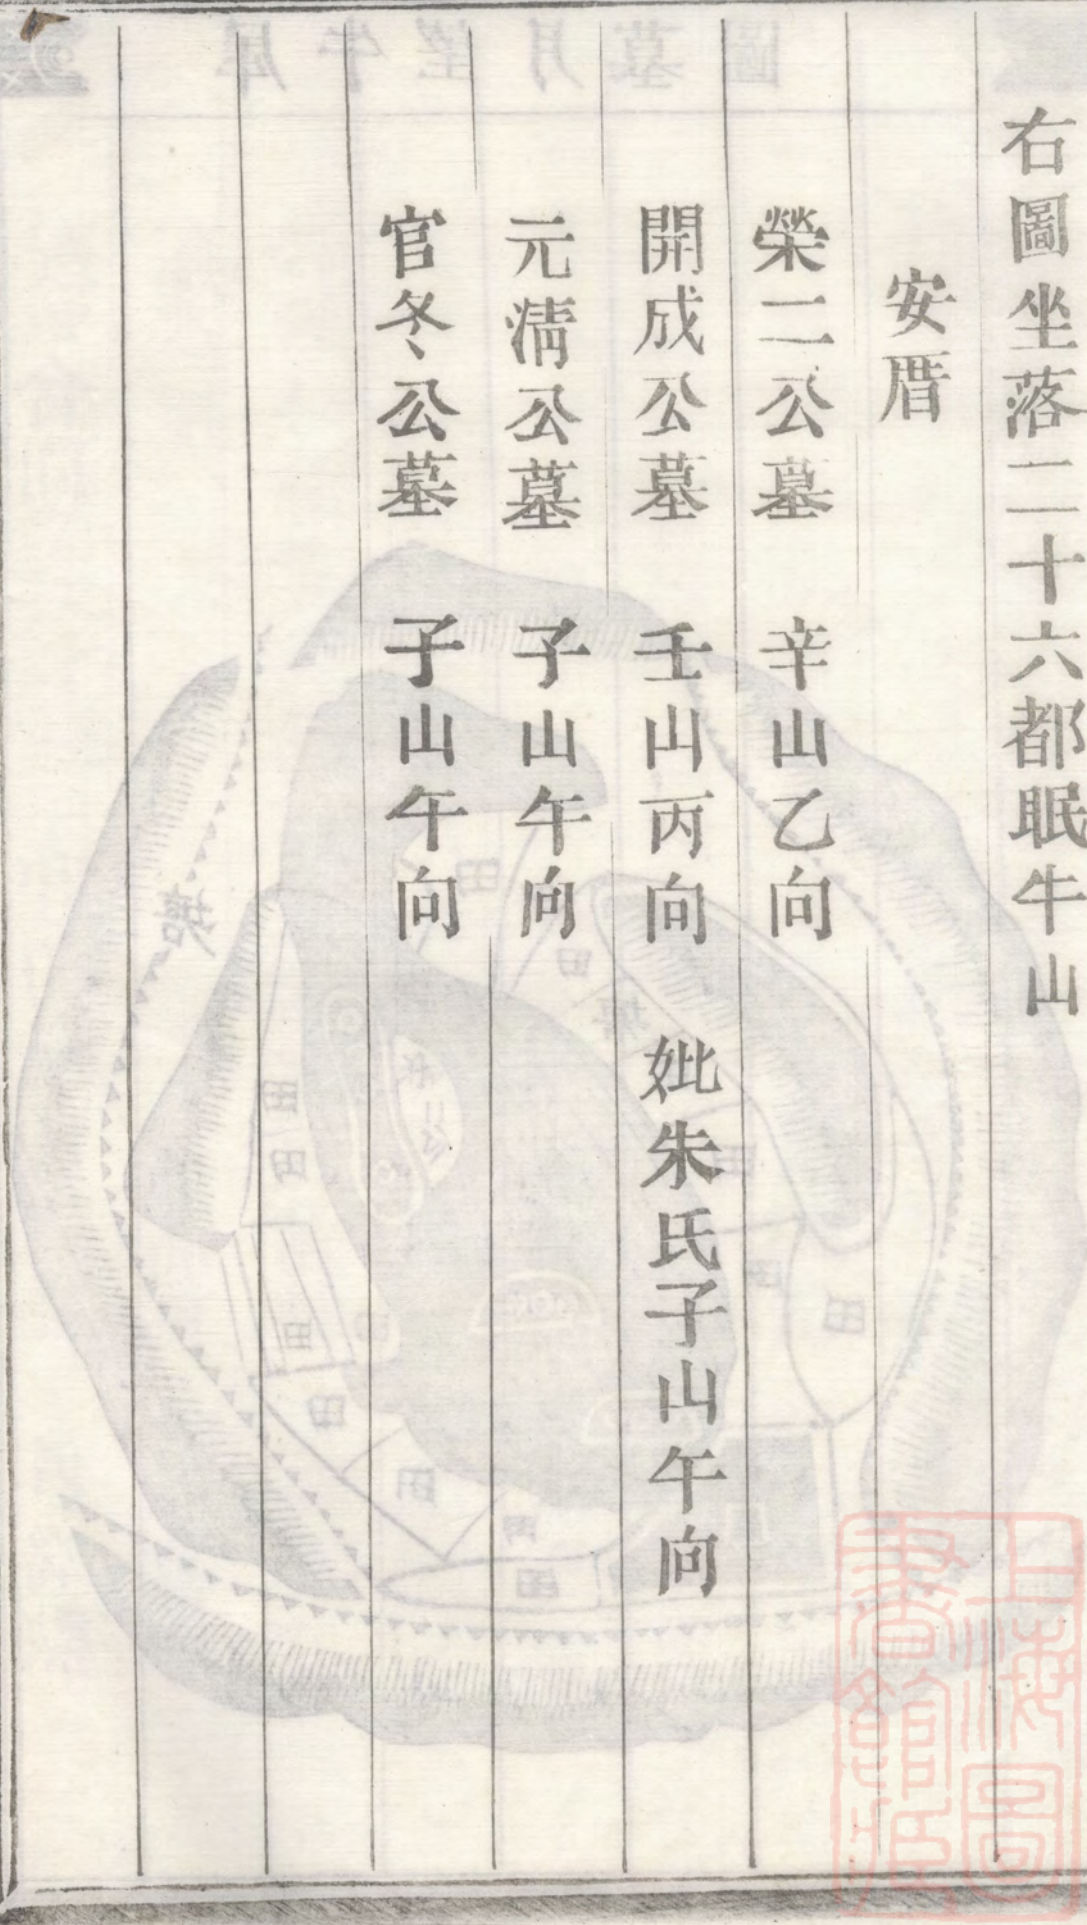 右圖坐落二十六都眠牛山
安厝
榮二公墓 辛山乙向
開成公墓 壬山丙向 妣朱氏子山午向
元淸公墓 子山午向
官冬公墓 子山午向
上海圖書館藏